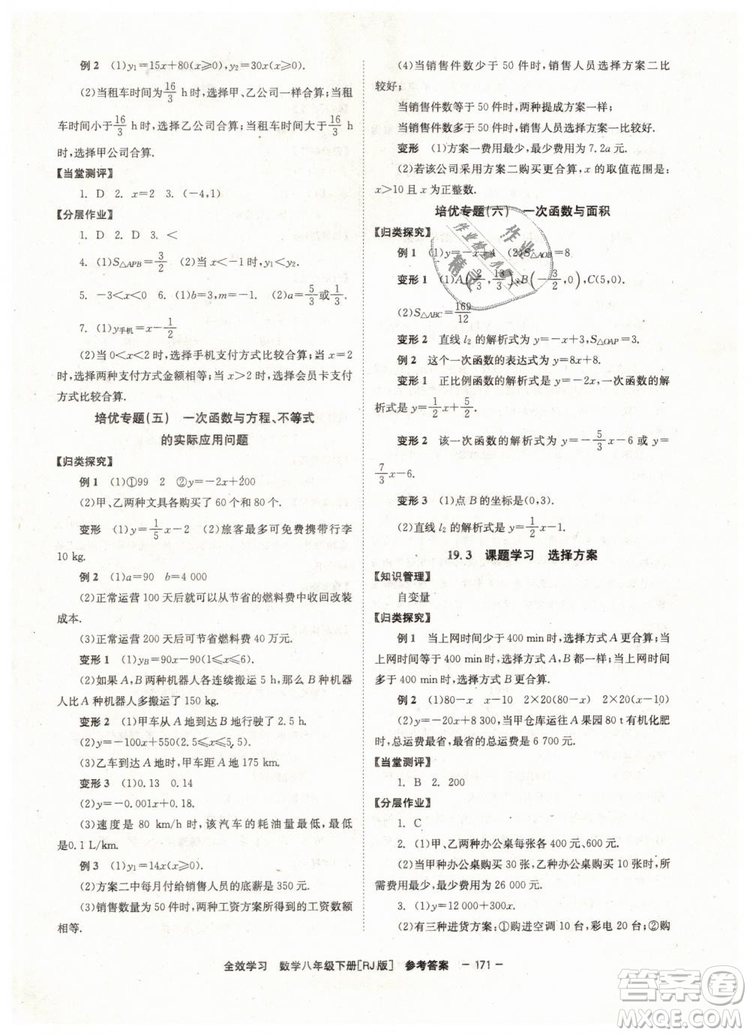 例2 (1)y₁=15x+80(x⩾0),y₂=30x(x⩾0).
(2)当租车时间为16/3 h时,选择甲、乙公司一样;当租
车时间小于16/3 h时,选择乙公司合算;当租车时间大于16/3 h
时,选择甲公司合算.
【当堂测评】
1. D 2. x=2 3. (-4,1)
【分层作业】
1. D 2. D 3. <
4. (1)S△APB=3/2 (2)x<-1时,y₁>y₂.
5. -3<x<0 6. (1)b=4 (2)a=5/3或1/3
7. (1)y手机=x-1/2
(2)当0<x<2时,选择手机支付方式比较合算;当x=
2时,两种支付方式金额相等;当x>2时,选择会员卡支付方
式比较合算.
培优专题(五) 一次函数与方程、不等式
的实际应用问题
【归类探究】
例1 (1)①99 2 ②y=-2x+200
(2)甲、乙两种文具各购买了60个和80个.
变形 (1)y=1/5x-2 (2)旅客最多可免费携带行李
10 kg.
例2 (1)a=90 b=4 000
(2)正常运营100天后可以从节省的燃料费中收回改装
成本.
(3)正常运营200天后可节省燃料费40万元.
变形1 (1)yB=90x-90(1⩽x⩽6).
(2)如果A、B两种机器人各连续搬运5 h,那么B种机器
人比A种机器人多搬运了150 kg.
变形2 (1)甲车从A地到B地行驶了2.5 h.
(2)y=-100x+550(2.5⩽x⩽5.5)
(3)乙车到达A地时,甲车距A地175 km.
变形3 (1)0.13 0.14
(2)y=-0.001x+0.18
(3)速度是80 km/h时,该汽车的耗油量最低,最低是
0.1 L/km.
例3 (1)y₁=14x(x⩾0).
(2)方案二中每月付给销售人员的底薪为350元.
(3)销售数量为50件时,两种方案的提成都是700元.
(4)当销售件数少于50件时,销售人员选择方案二比
较好;
当销售件数等于50件时,两种提成方案一样;
当销售件数多于50件时,选择方案一比较好.
变形 (1)方案一费用最少,最少费用为7.2a元.
(2)若该公司采用方案二购买更合算,x的取值范围是
x>10且x为正整数.
培优专题(六) 一次函数与面积
【归类探究】
例1 (1)y=-x+4 (2)S△AOB=8
变形1 (1)A(2/3,13/3),B(-3/2,0),C(5,0)
(2)S△ABC=169/12
变形2 直线l₂的解析式为y=-x+3,S△OAP=3.
例2 这个一次函数的表达式为y=8x+8.
变形1 正比例函数的解析式为y=1/2x或y=2x.
变形2 该一次函数的解析式为y=-5/3x-6或y=
7/3x-6.
变形3 (1)点B的坐标是(0,3).
(2)直线l₂的解析式是y=1/2x-1.
19.3 课题学习 选择方案
【知识管理】
自变量
【归类探究】
例1 当上网时间少于400 min时,选择方式A更合算;当
上网时间为400 min时,选择方式A、B都一样;当上网时间
大于400 min时,选择方式B更合算.
例2 (1)80-x x-10 2×20(80-x) 2×20(x-10)
(2)y=-20x+8 300,当甲仓库运往A果园80 t有机化肥
时,总运费最省,总运费是6 700元.
【当堂测评】
1. B 2. 200
【分层作业】
1. C
2. (1)甲、乙两种办公桌每张各400元、600元.
(2)当甲种办公桌购买30张,乙种办公桌购买10张时,
购买的总费用最少,最少费用为26 000元.
3. (1)y=300x+12 000
(2)有三种进货方案:①购进空调10台,彩电20台;②购
全效学习 数学八年级下册[RJ版] 参考答案 -171-
作业
作业检查小助手
精灵
答案圈
MXQE.COM